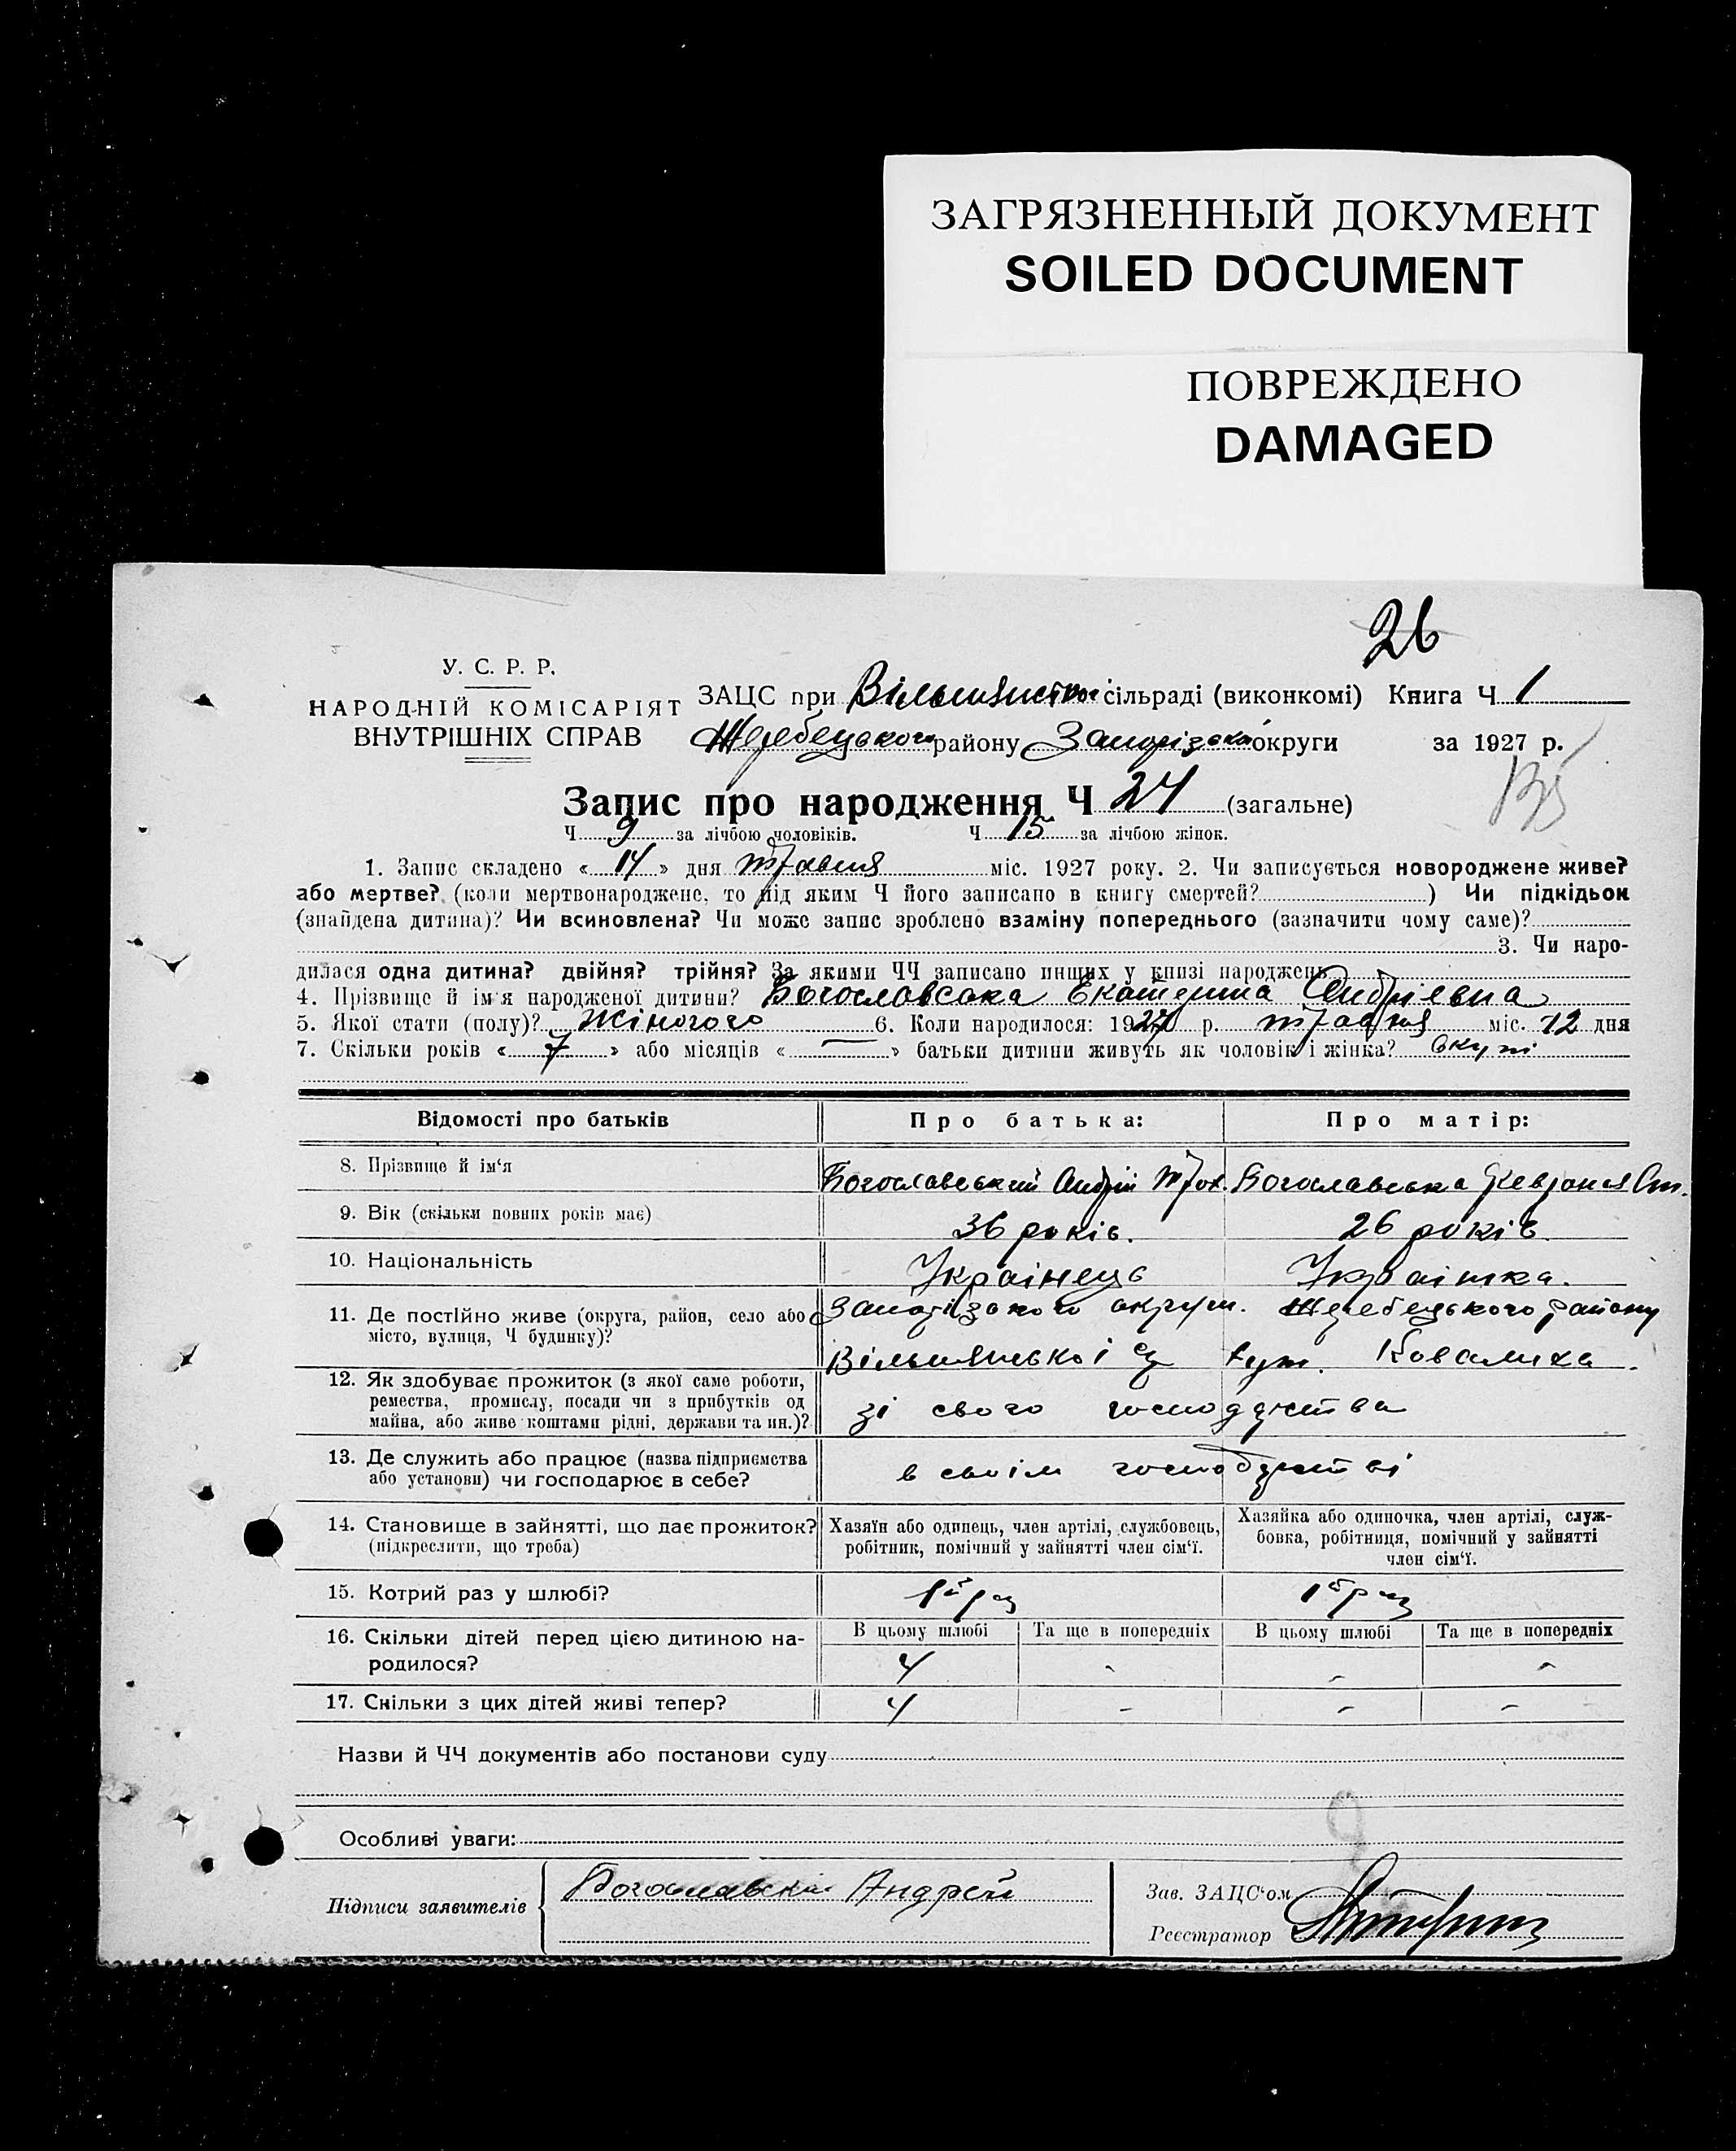 ЗАГРЯЗНЕННЫЙ ДОКУМЕНТ
SOILED DOCUMENT
ПОВРЕЖДЕНО
DAMAGED
26
У. С. Р. Р.
НАРОДНІЙ КОМІСАРІЯТ
ВНУТРІШНІХ СПРАВ
ЗАЦС при Вільшянській сільраді (виконкомі) Книга Ч 1
Жеребецького району Запорізької округи за 1927 р.
Запис про народження Ч 24 (загальне)
Ч 9 за лічбою чоловіків. Ч 15 за лічбою жінок.
1. Запис складено « 14 » дня травня міс. 1927 року. 2. Чи записується новороджене живе?
або мертве? (коли мертвонароджене, то під яким Ч його записано в книгу смертей? ) Чи підкідьок
(знайдена дитина)? Чи всиновлена? Чи може запис зроблено взаміну попереднього (зазначити чому саме)?
3. Чи наро-
дилася одна дитина? двійня? трійня? За якими ЧЧ записано инших у книзі народжень
4. Прізвище й ім'я народженої дитини? Богославська Екатерина Андріевна
5. Якої стати (полу)? жіночого 6. Коли народилося: 1927 р. травня міс. 12 дня
7. Скільки років « 7 » або місяців « — » батьки дитини живуть як чоловік і жінка? вкупі
Відомості про батьків Про батька: Про матір:
8. Прізвище й ім'я Богославський Андрій Трох. Богославська
9. Вік (скільки повних років має) 36 років. 26 років.
10. Національність Українець Українка.
11. Де постійно живе (округа, район, село або Запорізького округи. Жеребецького району
місто, вулиця, Ч будинку)? Вільшянської с/р хут. Ковалиха.
12. Як здобуває прожиток (з якої саме роботи,
ремества, промислу, посади чи з прибутків од зі свого господарства
майна, або живе коштами рідні, держави та ин.)?
13. Де служить або працює (назва підприємства в своім господарстві
або установи) чи господарює в себе?
14. Становище в зайнятті, що дає прожиток? Хазяїн або одинець, член артілі, службовець, Хазяйка або одиночка, член артілі, служ-
(підкреслити, що треба) робітник, помічний у зайнятті член сім'ї. бовка, робітниця, помічний у зайнятті
член сім'ї.
15. Котрий раз у шлюбі? 1й раз 1й раз
16. Скільки дітей перед цією дитиною на- В цьому шлюбі Та ще в попередніх В цьому шлюбі Та ще в попередніх
родилося? 4 - - -
17. Скільки з цих дітей живі тепер? 4 - - -
Назви й ЧЧ документів або постанови суду
Особливі уваги:
9
Підписи заявителів Богославский Андрей
Зав. ЗАЦС'ом
Реєстратор